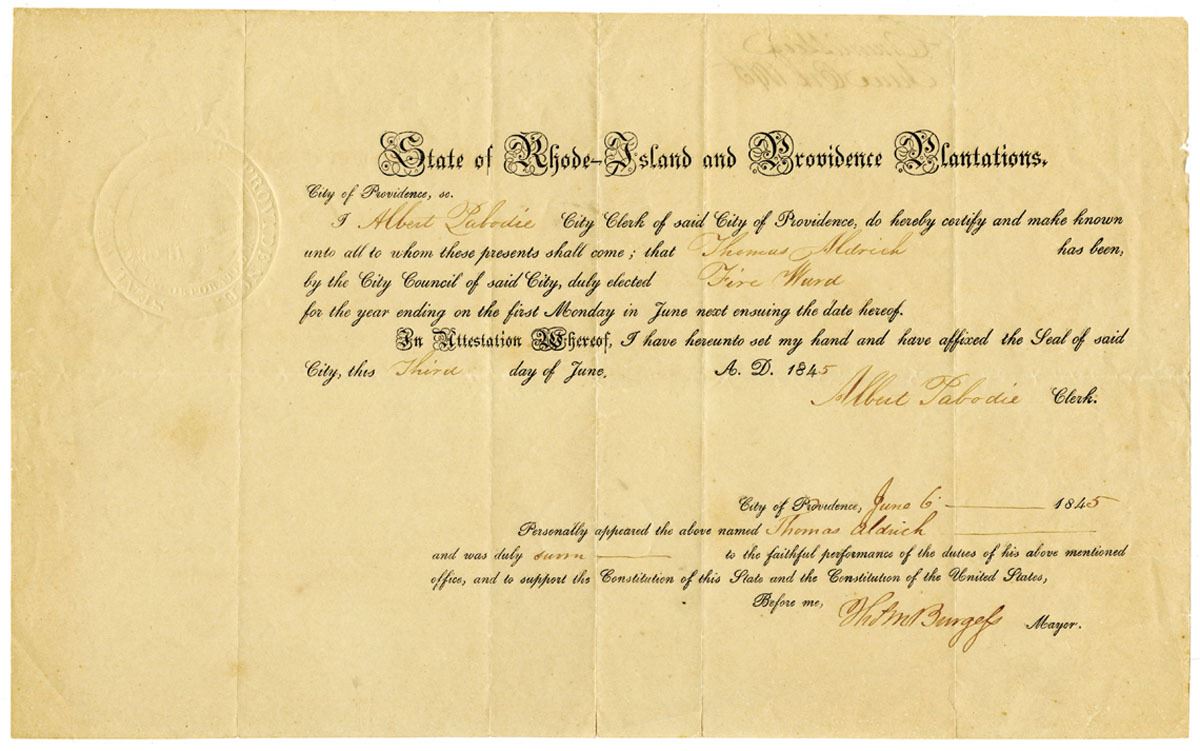 State of Rhode-Island and Providence Plantations.
City of Providence, sc.
I Albert Pabodie City Clerk of said City of Providence, do hereby certify and make known
unto all to whom these presents shall come; that Thomas Aldrich has been,
by the City Council of said City, duly elected Fire Ward
for the year ending on the first Monday in June next ensuing the date hereof.
In Attestation Whereof, I have hereunto set my hand and have affixed the Seal of said
City, this Third day of June, A. D. 1845
Albert Pabodie Clerk.
City of Providence, June 6 1845
Personally appeared the above named Thomas Aldrich
and was duly sworn to the faithful performance of the duties of his above mentioned
office, and to support the Constitution of this State and the Constitution of the United States,
Before me,
Thos M Burgess Mayor.